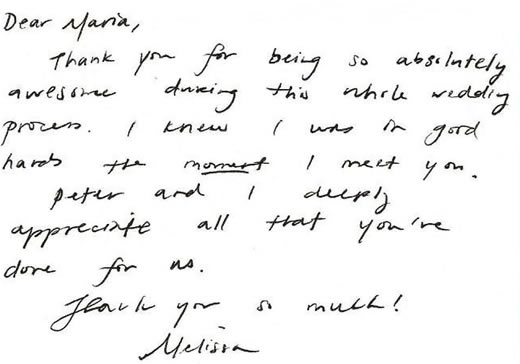 Dear Maria,
Thank you for being so absolutely
awesome during this whole wedding
process. I knew I was in good
hands the moment I meet you.
Peter and I deeply
appreciate all that you've
done for us.
Thank you so much!
Melissa